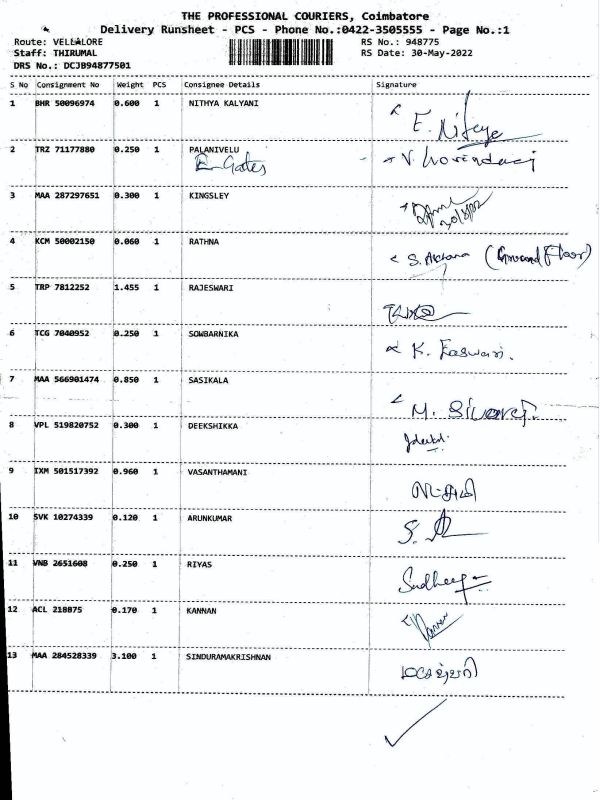 THE PROFESSIONAL COURIERS, Coimbatore
Delivery Runsheet - PCS - Phone No.:0422-3505555 - Page No.:1
Route: VELLALORE
RS No.: 948775
Staff: THIRUMAL
RS Date: 30-May-2022
DRS No.: DCJB94877501
S No Consignment No Weight PCS Consignee Details Signature
1 BHR 50096974 0.600 1 NITHYA KALYANI E. Nithya
2 TRZ 71177880 0.250 1 PALANIVELU
E-Gates
3 MAA 287297651 0.300 1 KINGSLEY
4 KCM 50002150 0.060 1 RATHNA S. Archana (Ground Floor)
5 TRP 7812252 1.455 1 RAJESWARI
6 TCG 7040952 0.250 1 SOWBARNIKA K. Easwari.
7 MAA 566901474 0.850 1 SASIKALA
8 VPL 519820752 0.300 1 DEEKSHIKKA
9 IXM 501517392 0.960 1 VASANTHAMANI
10 SVK 10274339 0.120 1 ARUNKUMAR
11 VNB 2651608 0.250 1 RIYAS Sudheep
12 ACL 218875 0.170 1 KANNAN Kannan
13 MAA 284528339 3.100 1 SINDURAMAKRISHNAN